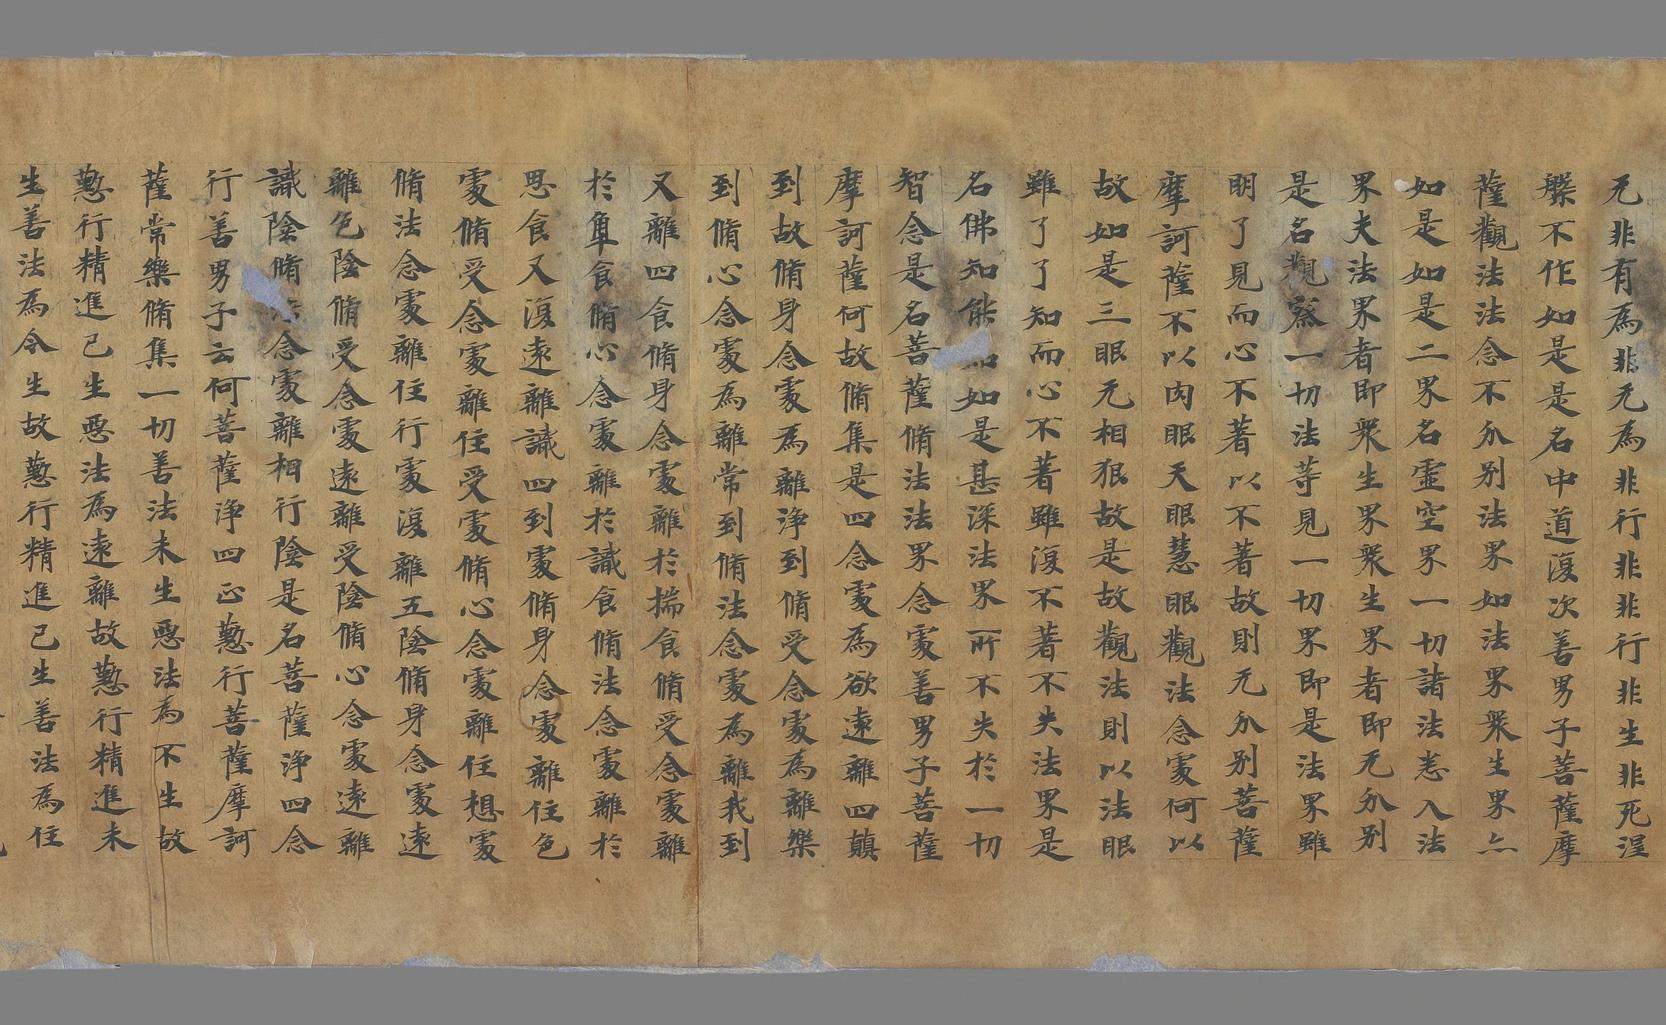 无非有為非无為非行非非行非生非死涅
槃不作如是是名中道復次善男子菩薩摩
薩觀法法念不分别法界如法界衆生界亦
如是如是二界名虛空界一切諸法悉入法
界夫法界者即衆生界衆生界者即无分别
是名觀察一切法等見一切界即是法界雖
明了見而心不著以不著故則无分别菩薩
摩訶薩不以肉眼天眼慧眼觀法念處何以
故如是三眼无相狠故是故觀法則以法眼
雖了了知而心不著雖復不著不失法界是
名佛知能如是甚深法界所不失於一切
智念是名菩薩脩法法界念處善男子菩薩
摩訶薩何故脩集是四念處為欲遠離四顛
到故脩身念處為離淨到脩受念處為離樂
到脩心念處為離常到脩法念處為離我到
又離四食脩身念處離於揣食脩受念處離
於食脩心念處離於識食脩法念處離於
思食又復遠離識四到處脩身念處離住色
處脩受念處離住受處脩心念處離住想處
脩法念處離住行處復離五陰脩身念處遠
離色陰脩受念處遠離受陰脩心念處遠離
識陰脩念處離相行陰是名菩薩淨四念
行善男子云何菩薩淨四正懃行菩薩摩訶
薩常樂脩集一切善法未生惡法為不生故
懃行精進已生惡法為遠離故懃行精進未
生善法為令生故懃行精進已生善法為住